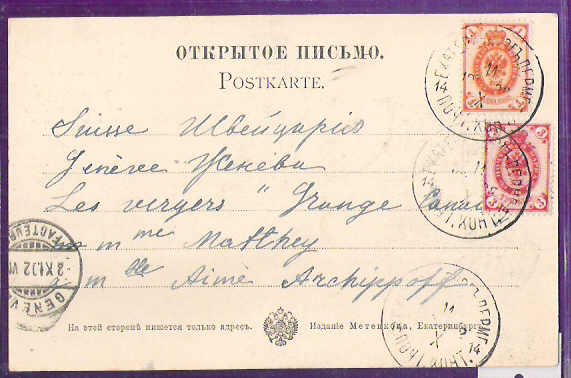 ОТКРЫТОЕ ПИСЬМО.
POSTKARTE.
Suisse Швейцарія
Genève Женева
Les vergers " Grange Canal
m me Matthey
m lle Aimé Archippoff
На этой сторонѣ пишется только адресъ.
Изданіе Метенкова, Екатеринбургъ
ЕКАТЕРИНБУРГЪ ПЕРМ.
14 ПОЧТ. КОН.
11
X
3
3
FACTEUR
2 XI.02 VII
GENÈV
ПЕРМ.
14 ПОЧТ. КОН.
11
X